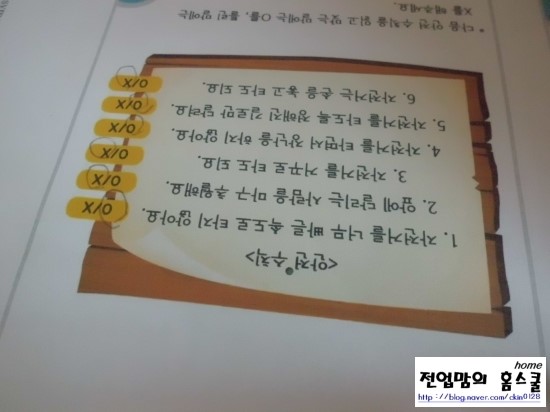 * 다음 안전 수칙을 읽고 맞는 말에는 O를, 틀린 말에는
X를 해주세요.
<안전 수칙>
1. 자전거를 너무 빠른 속도로 타지 않아요. O/X
2. 앞에 달리는 사람을 마구 추월해요. O/X
3. 자전거를 거꾸로 타도 되요. O/X
4. 자전거를 타면서 장난을 하지 않아요. O/X
5. 자전거를 타도록 정해진 길로만 달려요. O/X
6. 자전거는 손을 놓고 타도 되요. O/X
home
전업맘의 홈스쿨
http://blog.naver.com/ckim0128